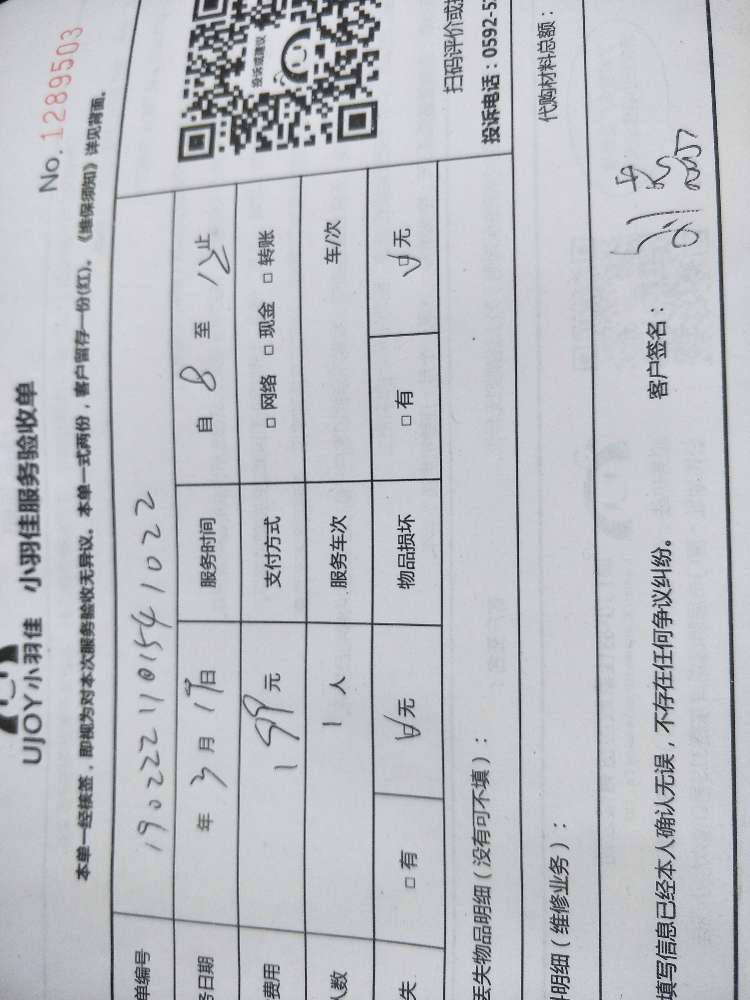 UJOY小羽佳 小羽佳服务验收单
No. 1289503
本单一经核签，即视为对本次服务验收无异议。本单一式两份，客户留存一份(红)。《维保须知》详见背面。
单编号 1902221101541022
务日期 年 3 月 19 日 服务时间 自 8 至 12 止
费用 199 元 支付方式 □ 网络 □ 现金 □ 转账
人数 1 人 服务车次 车/次
失 □ 有 □ 无 物品损坏 □ 有 □ 无
投诉或建议
扫码评价或
投诉电话：0592-5
丢失物品明细（没有可不填）：
明细（维修业务）： 代购材料总额：
填写信息已经本人确认无误，不存在任何争议纠纷。 客户签名：